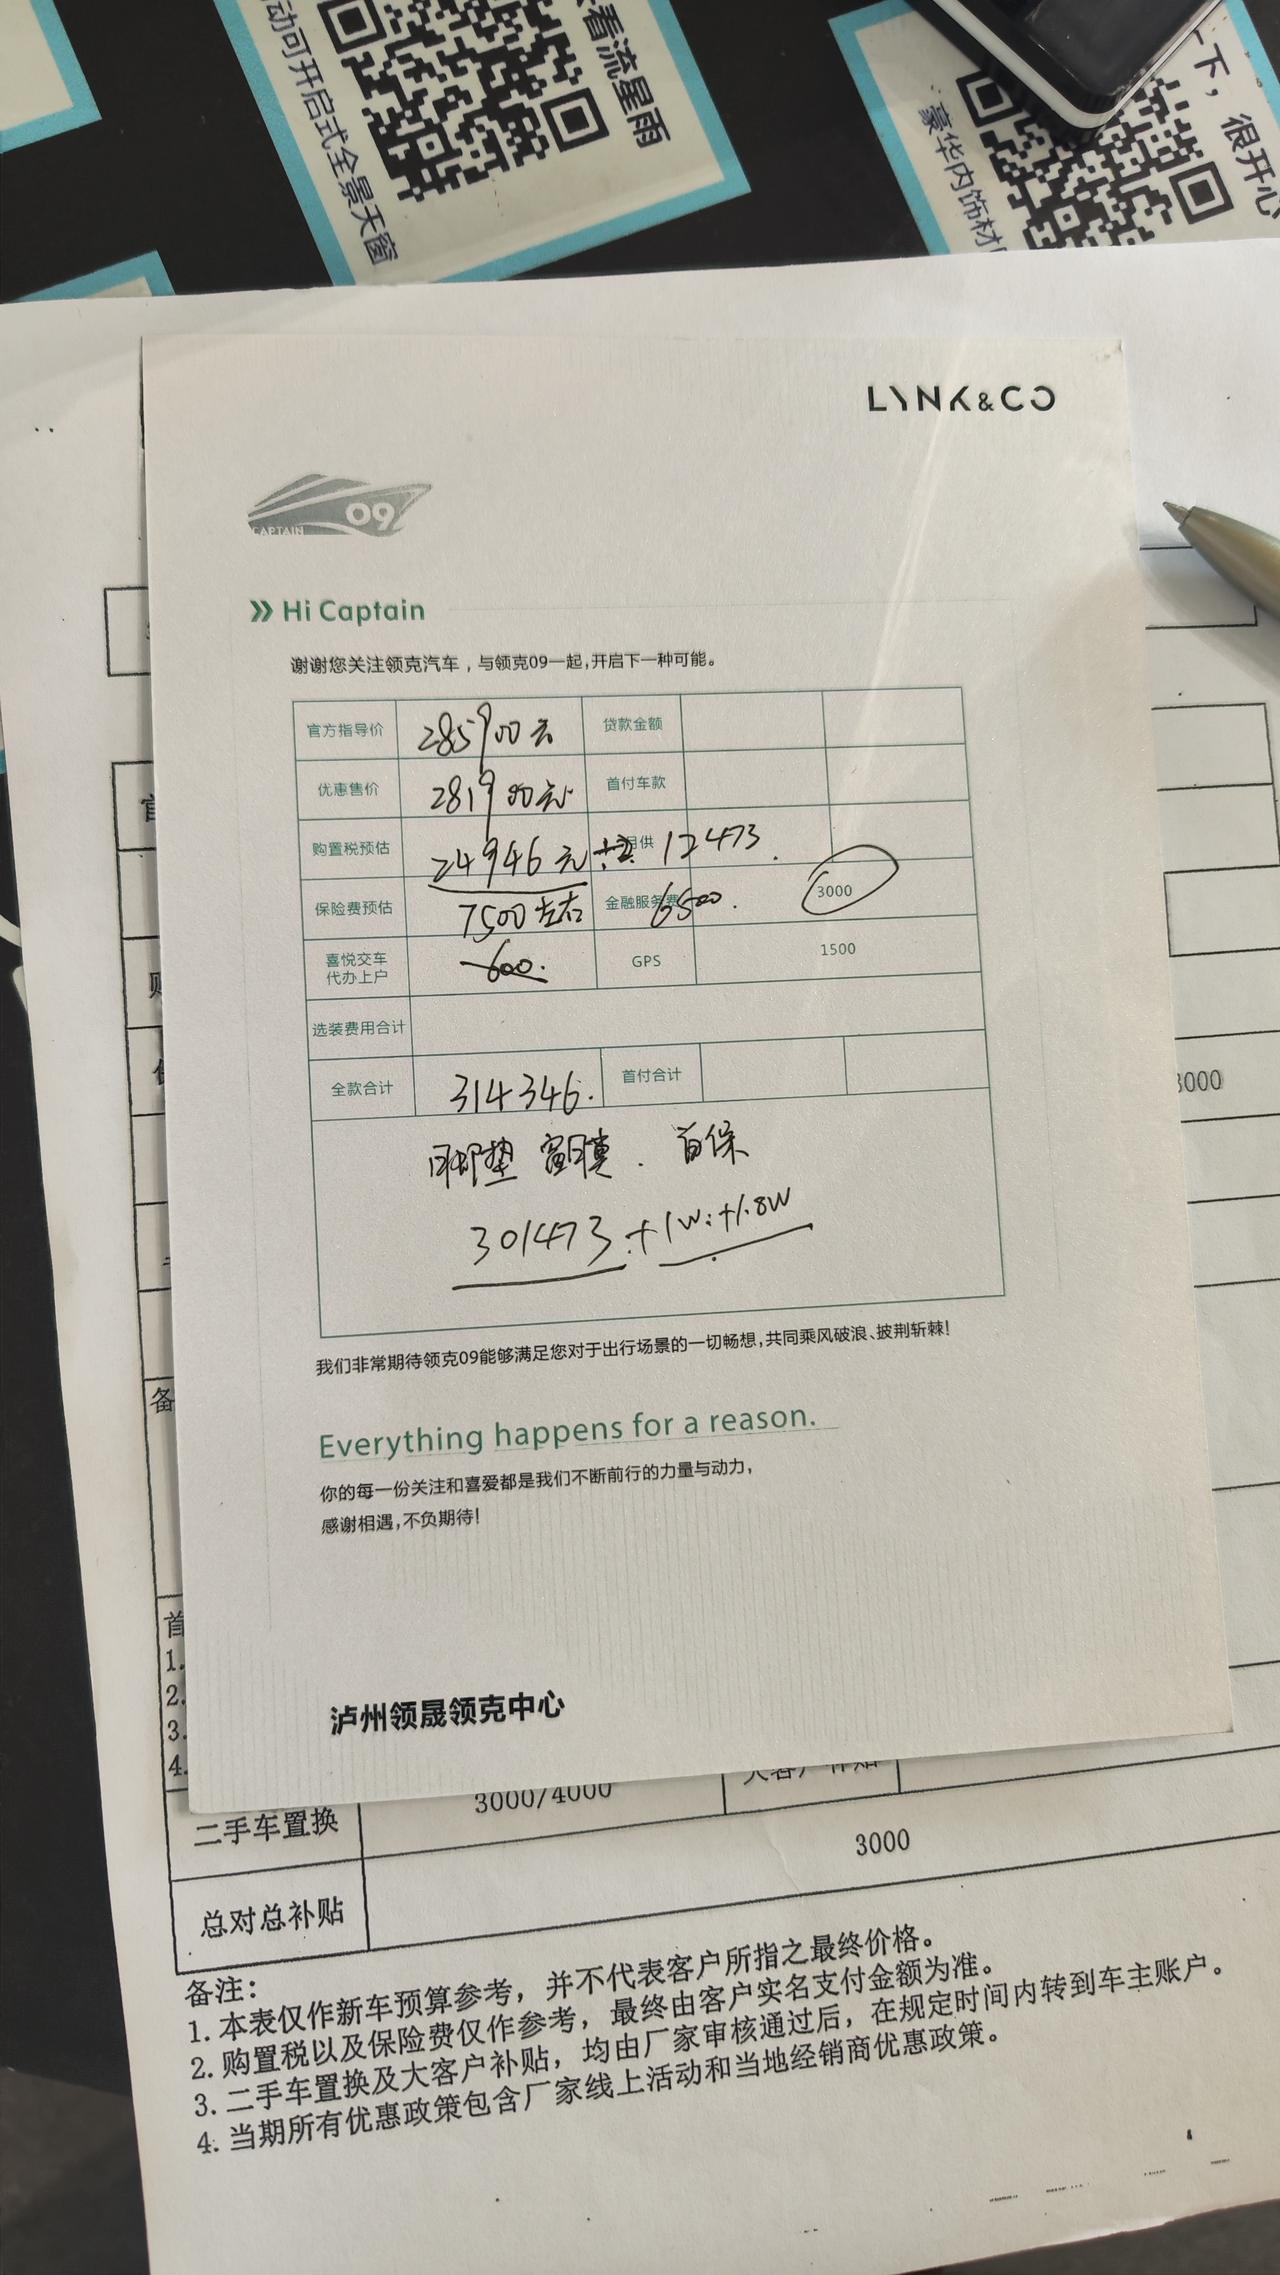 看流星雨
动可开启式全景天窗
一下，很开心
豪华内饰材
LYNK&CO
CAPTAIN 09
Hi Captain
谢谢您关注领克汽车，与领克09一起，开启下一种可能。
官方指导价 285900元 贷款金额
优惠售价 281900元 首付车款
购置税预估 24946元 月供 12473.
保险费预估 7500左右 金融服务费 6500. 3000
喜悦交车 代办上户 600. GPS 1500
选装费用合计
全款合计 314346. 首付合计
脚垫 窗膜. 首保
301473+1W+1.8W
我们非常期待领克09能够满足您对于出行场景的一切畅想，共同乘风破浪、披荆斩棘！
Everything happens for a reason.
你的每一份关注和喜爱都是我们不断前行的力量与动力，
感谢相遇，不负期待！
泸州领晟领克中心
3000
备
首
1.
2.
3.
4.
二手车置换 3000/4000
总对总补贴 3000
备注：
1. 本表仅作新车预算参考，并不代表客户所指之最终价格。
2. 购置税以及保险费仅作参考，最终由客户实名支付金额为准。
3. 二手车置换及大客户补贴，均由厂家审核通过后，在规定时间内转到车主账户。
4. 当期所有优惠政策包含厂家线上活动和当地经销商优惠政策。